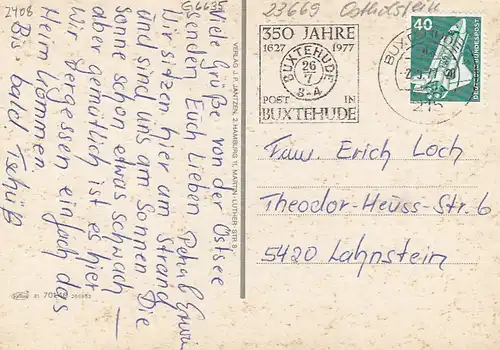 2408
G 6635
23669 Ostholstein
Viele Grüße von der Ostsee
senden Euch Lieben Petra & Erwin
Wir sitzen hier am Strand
und sind uns am Sonnen. Die
Sonne schon etwas schwach —
aber gemütlich ist es hier
Wir vergessen einfach das
Heim kommen.
Bis bald Tschüß
VERLAG J. P. JANTZEN, 2 HAMBURG 11, MARTIN-LUTHER-STR. 8
21 701
350 JAHRE
1627 1977
BUXTEHUDE
26
7
3-4
POST IN
BUXTEHUDE
40
DEUTSCHE BUNDESPOST
215
Fam. Erich Loch
Theodor-Heuss-Str. 6
5420 Lahnstein